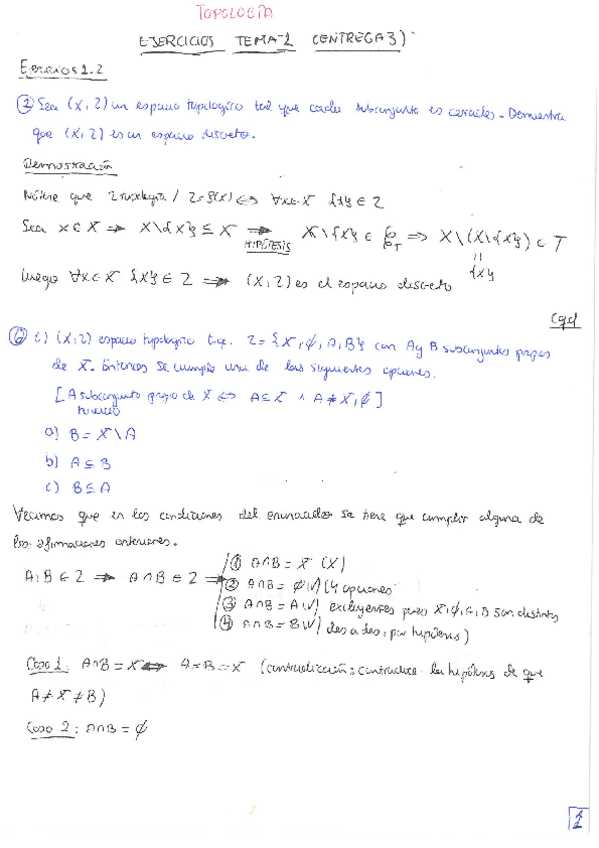 TOPOLOGÍA
EJERCICIOS TEMA-1 (ENTREGA 3)
Ejercicios 1.2
② Sea (X, τ) un espacio topologico tal que cada subconjunto es cerrado. Demuestra
que (X, τ) es un espacio discreto.
Demostración
Nótese que τ topología / τ = P(X) ⟺ ∀x∈X {x} ∈ τ
Sea x ∈ X ⟹ X\{x} ⊆ X ⟹ X\{x} ∈ C_T ⟹ X\(X\{x}) ∈ T
HIPÓTESIS
=
{x}
luego ∀x∈X {x} ∈ τ ⟹ (X, τ) es el espacio discreto
Cqd
⑥ i) (X, τ) espacio topologico t.q. τ = {X, ∅, A, B} con A y B subconjuntos propios
de X. Entonces se cumple una de las siguientes opciones.
[A subconjunto propio de X ⟺ A ⊆ X ∧ A ≠ X, ∅]
a) B = X\A
b) A ⊆ B
c) B ⊆ A
Veamos que en las condiciones del enunciado se tiene que cumplir alguna de
las afirmaciones anteriores.
A, B ∈ τ ⟹ A∩B ∈ τ ⟹
① A∩B = X (X)
② A∩B = ∅ (4 opciones
③ A∩B = A excluyentes pues X, ∅, A, B son distintos
④ A∩B = B dos a dos, por hipótesis)
Caso 1: A∩B = X ⟺ A=B=X (contradicción: contradice la hipótesis de que
A ≠ X ≠ B)
Caso 2: A∩B = ∅
1